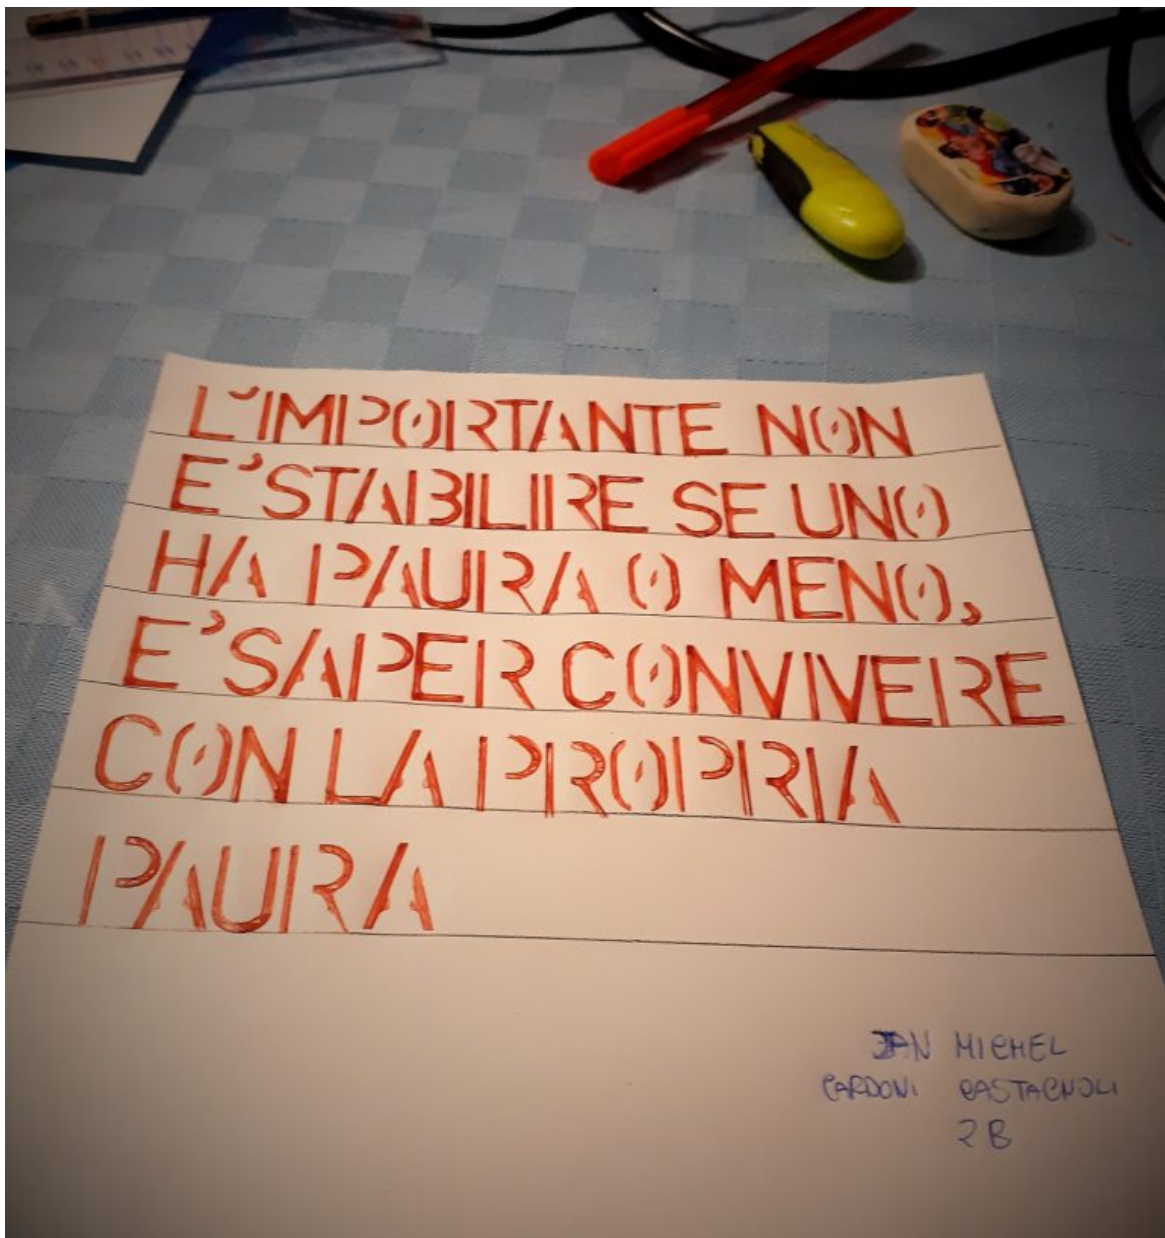 L'IMPORTANTE NON
E'STABILIRE SE UNO
HA PAURA O MENO,
E'SAPER CONVIVERE
CON LA PROPRIA
PAURA
JAN MICHEL
CARDONI CASTAGNOLI
2B